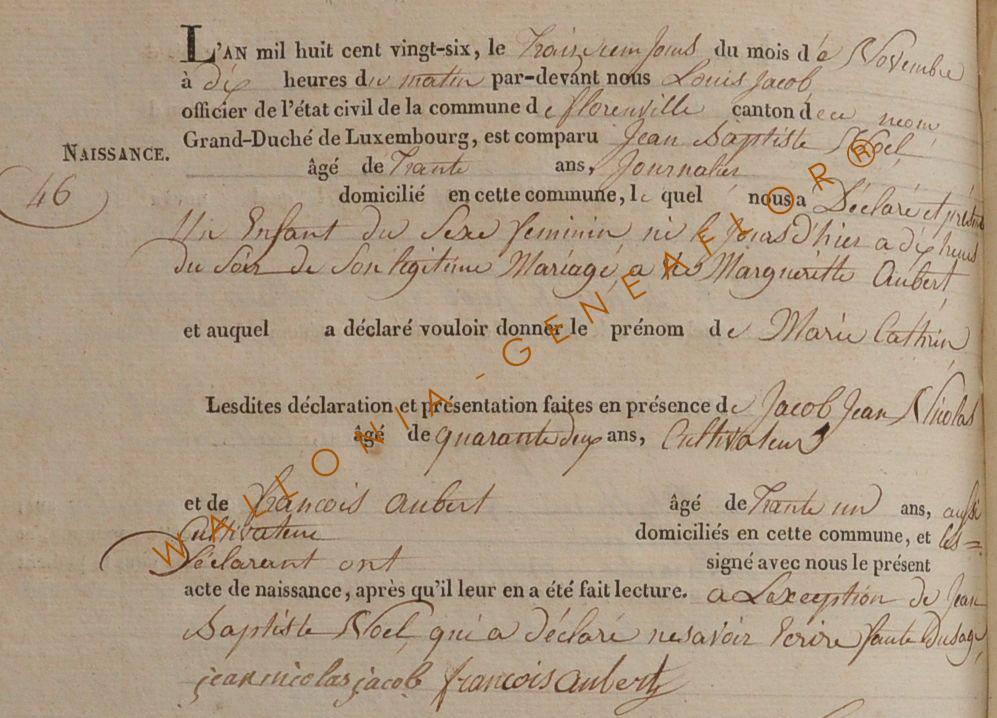 L'AN mil huit cent vingt-six, le du mois de Novembre
à dix heures du matin par-devant nous Louis Jacob
officier de l'état civil de la commune de florenville canton de ce nom
Grand-Duché de Luxembourg, est comparu Jean Baptiste Noël
NAISSANCE.
âgé de Trante ans, Journalier
46
domicilié en cette commune, le quel nous a Déclaré et présenté
Un Enfant du Sexe feminin né le Jours d'hier a dix heures
du Soir de Son légitime Mariage, a Margueritte Aubert
et auquel a déclaré vouloir donner le prénom de Marie Cathrin
Lesdites déclaration et présentation faites en présence de Jacob Jean Nicolas
âgé de quarante deux ans, Cultivateur
et de francois Aubert âgé de Trante un ans, aussi
Cultivateur domiciliés en cette commune, et les =
Déclarant ont signé avec nous le présent
acte de naissance, après qu'il leur en a été fait lecture. a Lexception de Jean
Baptiste Noël qui a déclaré ne savoir Ecrire faute Dusage
jean nicolas jacob francois aubert
WALLONIA-GENEALOR®